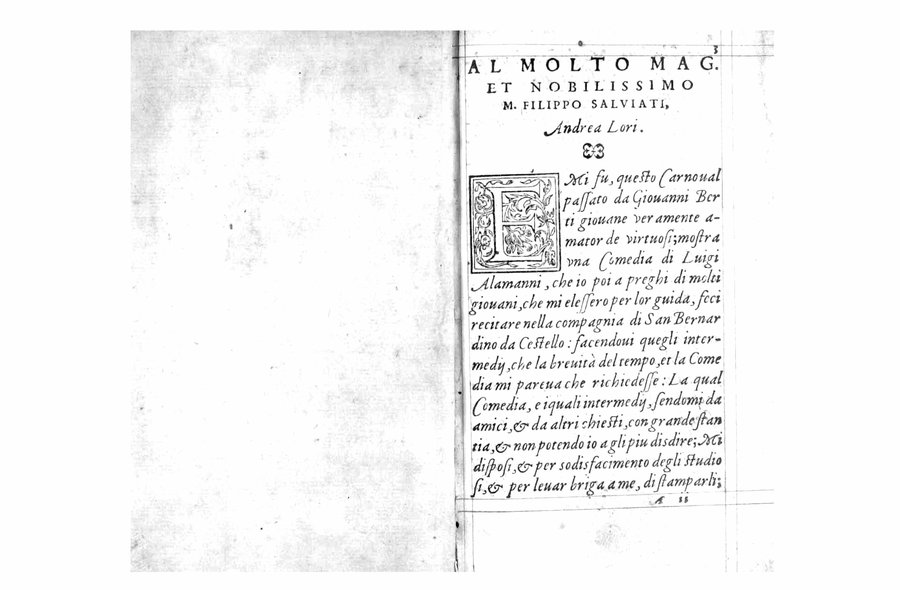 3
AL MOLTO MAG.
ET NOBILISSIMO
M. FILIPPO SALVIATI,
Andrea Lori.
E Mi fu, questo Carnoual
passato da Giouanni Ber
ti giouane veramente a-
mator de virtuosi; mostra
vna Comedia di Luigi
Alamanni, che io poi a preghi di molti
giouani, che mi elessero per lor guida, feci
recitare nella compagnia di San Bernar
dino da Cestello: facendoui quegli inter-
medij, che la breuità del tempo, et la Come
dia mi pareua che richiedesse: La qual
Comedia, e iquali intermedij, sendomi da
amici, & da altri chiesti, con grande stan
tia, & non potendo io a gli piu disdire; Mi
disposi, & per sodisfacimento degli studio
si, & per leuar briga a me, di stamparli;
A ii